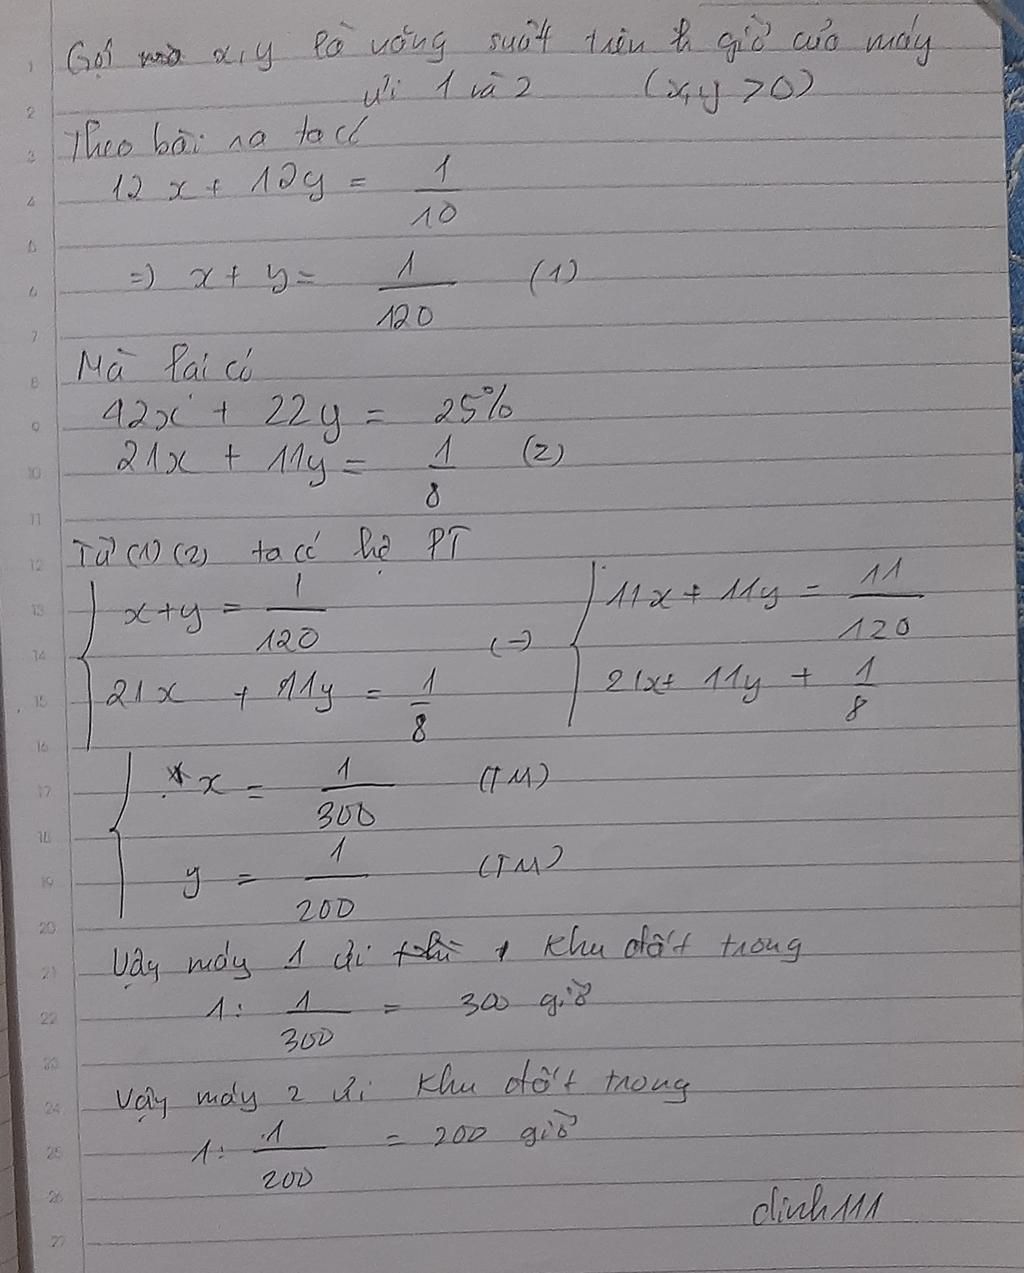 Gọi x,y là năng suất trên h giờ của máy
ủi 1 và 2 (x,y > 0)
Theo bài ra ta có
12x + 12y = 1/10
=) x + y = 1/120 (1)
Mà lại có
42x + 22y = 25%
21x + 11y = 1/8 (2)
Từ (1) (2) ta có hệ PT
{ x+y = 1/120 (-) { 11x + 11y = 11/120
21x + 11y = 1/8 21x+ 11y + 1/8
{ x = 1/300 (TM)
y = 1/200 (TM)
Vậy máy 1 ủi thì 1 khu đất trong
1: 1/300 = 300 giờ
Vậy máy 2 ủi khu đất trong
1: 1/200 = 200 giờ
dinh111